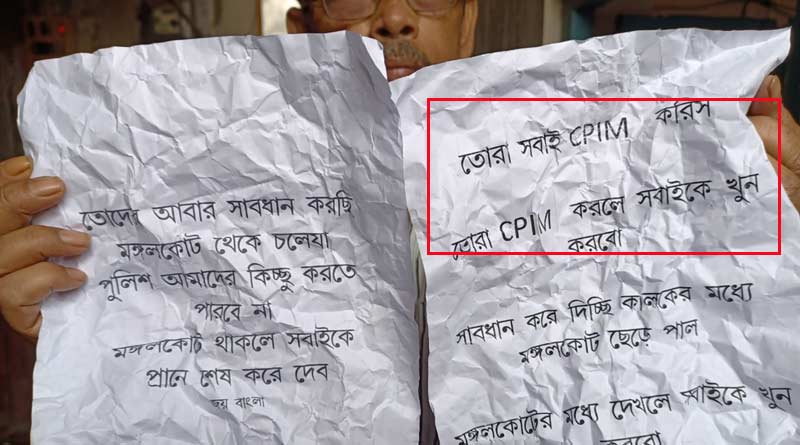 তোদের আবার সাবধান করছি
মঙ্গলকোট থেকে চলেযা
পুলিশ আমাদের কিচ্ছু করতে
পারবে না
মঙ্গলকোট থাকলে সবাইকে
প্রানে শেষ করে দেব
জয় বাংলা
তোরা সবাই CPIM করিস
তোরা CPIM করলে সবাইকে খুন
করবো
সাবধান করে দিচ্ছি কালকের মধ্যে
মঙ্গলকোট ছেড়ে পাল
মঙ্গলকোটের মধ্যে দেখলে সবাইকে খুন
করবো